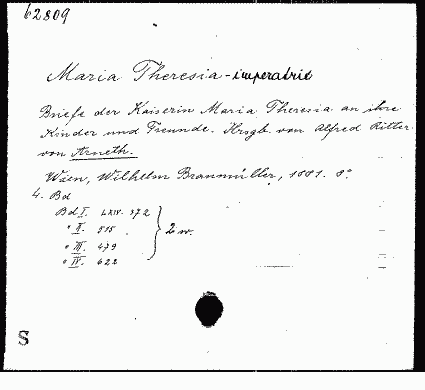 62809
Maria Theresia - imperatrit
Briefe der Kaiserin Maria Theresia an ihre
Kinder und Freunde. Hrsgb. von Alfred Ritter
von Arneth.
Wien, Wilhelm Braumüller, 1881. 8°
4. Bd
Bd I. LXIV. 372
" II. 515
" III. 479
" IV. 622
2 w.
S